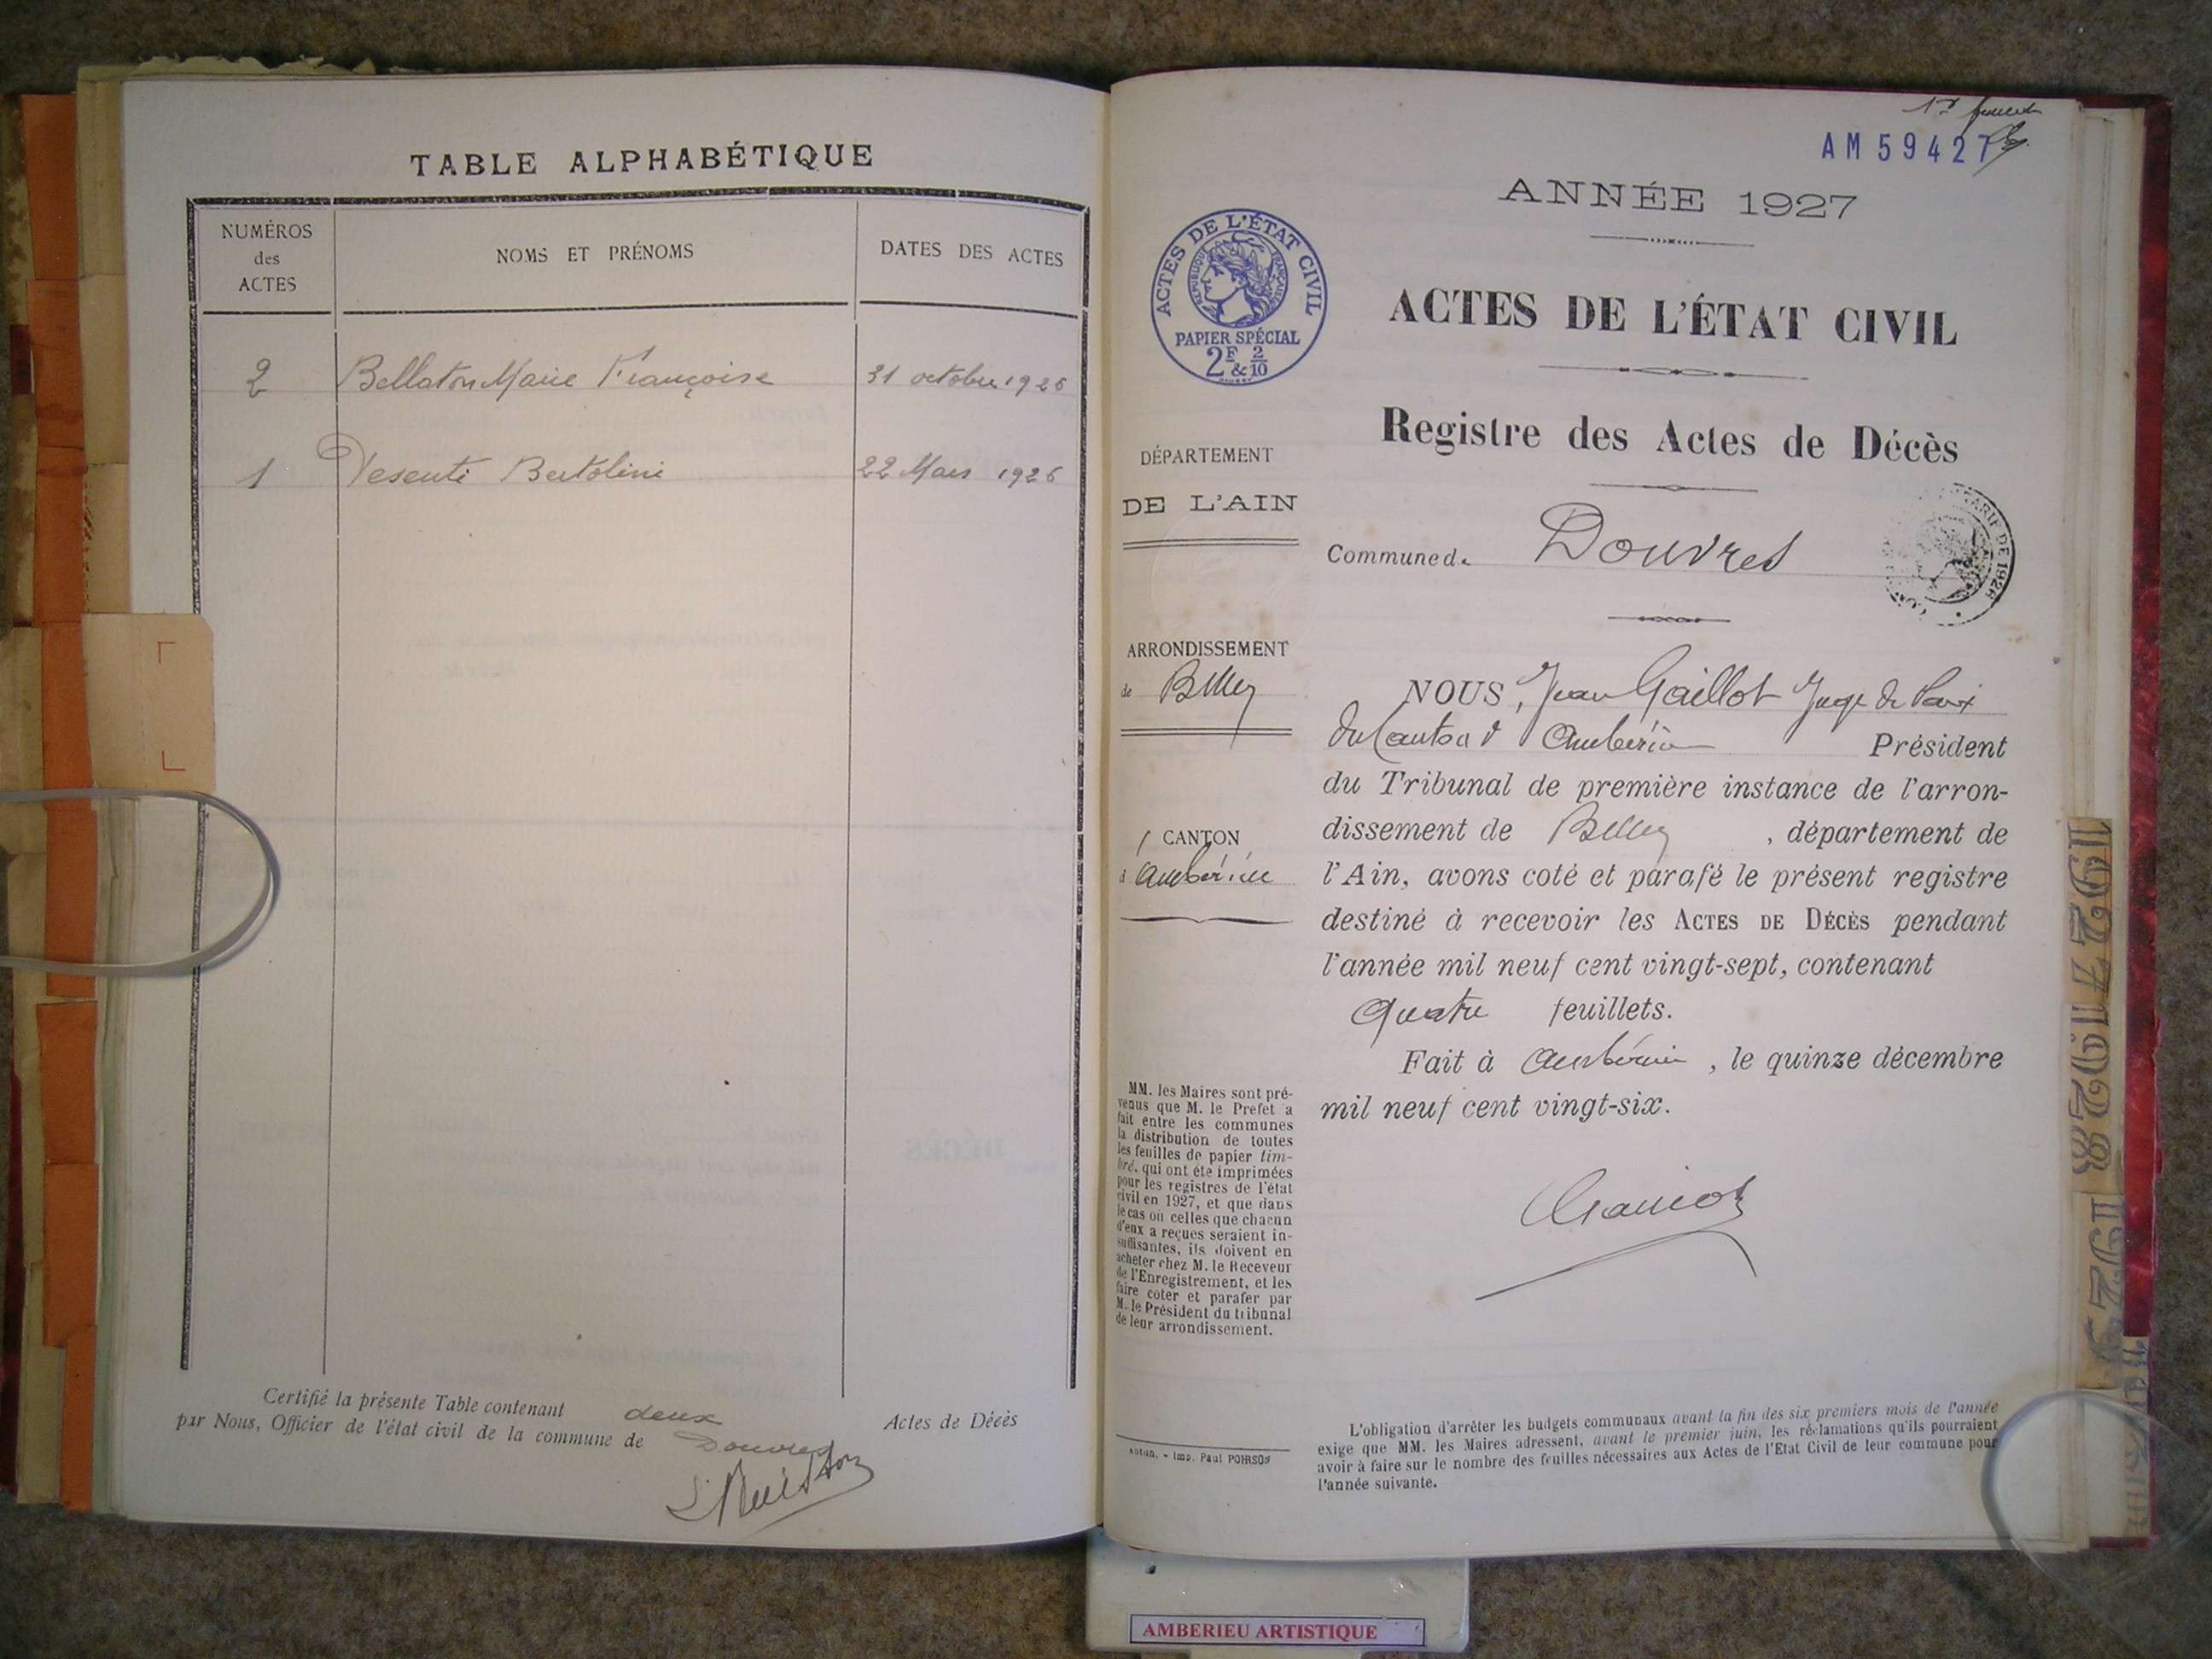 TABLE ALPHABÉTIQUE
NUMÉROS
des
ACTES
NOMS ET PRÉNOMS
DATES DES ACTES
2 Bellaton Marie Françoise 31 octobre 1926
1 Pesenti Bertolini 22 Mars 1926
Certifié la présente Table contenant deux Actes de Décès
par Nous, Officier de l'état civil de la commune de Douvres
1er feuillet
AM 59427
ANNÉE 1927
ACTES DE L'ÉTAT CIVIL
RÉPUBLIQUE FRANÇAISE
PAPIER SPÉCIAL
2F & 2/10
ACTES DE L'ÉTAT CIVIL
Registre des Actes de Décès
Commune de Douvres
TARIF DE 192
DÉPARTEMENT
DE L'AIN
ARRONDISSEMENT
de Belley
CANTON
d'Ambérieu
MM. les Maires sont pré-
venus que M. le Prefet a
fait entre les communes
la distribution de toutes
les feuilles de papier tim-
bré, qui ont été imprimées
pour les registres de l'état
civil en 1927, et que dans
le cas où celles que chacun
d'eux a reçues seraient in-
suffisantes, ils doivent en
acheter chez M. le Receveur
de l'Enregistrement, et les
faire coter et parafer par
M. le Président du tribunal
de leur arrondissement.
Imp. Paul POIRSON
NOUS, Jean Gaillot Juge de Paix
du Canton d'Ambérieu Président
du Tribunal de première instance de l'arron-
dissement de Belley, département de
l'Ain, avons coté et parafé le présent registre
destiné à recevoir les ACTES DE DÉCÈS pendant
l'année mil neuf cent vingt-sept, contenant
Quatre feuillets.
Fait à Ambérieu, le quinze décembre
mil neuf cent vingt-six.
L'obligation d'arrêter les budgets communaux avant la fin des six premiers mois de l'année
exige que MM. les Maires adressent, avant le premier juin, les réclamations qu'ils pourraient
avoir à faire sur le nombre des feuilles nécessaires aux Actes de l'Etat Civil de leur commune pour
l'année suivante.
1927
1928
1929
AMBERIEU ARTISTIQUE